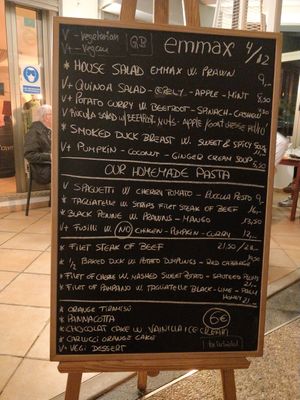 V - vegetarian
V+ - vegan
QB
emmax 4/12
* HOUSE SALAD EMMAX W PRAWN 9,-
V+ QUINOA SALAD - CELY - APPLE - MINT 8,50
V+ POTATO CURRY W BEETROOT - SPINACH - CASHEW
V RUCOLA SALAD W BEETROOT NUTS - APPLE / GOAT CHEESE
* SMOKED DUCK BREAST W SWEET & SPICY SOUS
V+ PUMPKIN - COCONUT - GINGER CREAM SOUP 5,50
OUR HOMEMADE PASTA
V SPAGUETTI W CHERRY TOMATO - RUCOLA PESTO 9,-
* TAGLIATELLE W STRIPS FILET STEAK OF BEEF
* BLACK PENNE W PRAWNS - MANGO 13,50
V+ FUSILLI W (NO) CHICKEN - PUMPKIN - CURRY 12,-
* FILET STEAK OF BEEF 21,50
* 1/2 BAKED DUCK W POTATO DUMPLINGS - RED CABBAGE
* FILET OF W MASHED SWEET POTATO -
* FILET OF PAMPANO W TAGLIATELLE BLACK - LIME -
HONEY 21,-
* ORANGE TIRAMISU
* PANNACOTTA
* CHOCOLAT CAKE W VAINILLA ICE CREAM
* CARLUCCI ORANGE CAKE
V+ VEGI DESSERT
6€